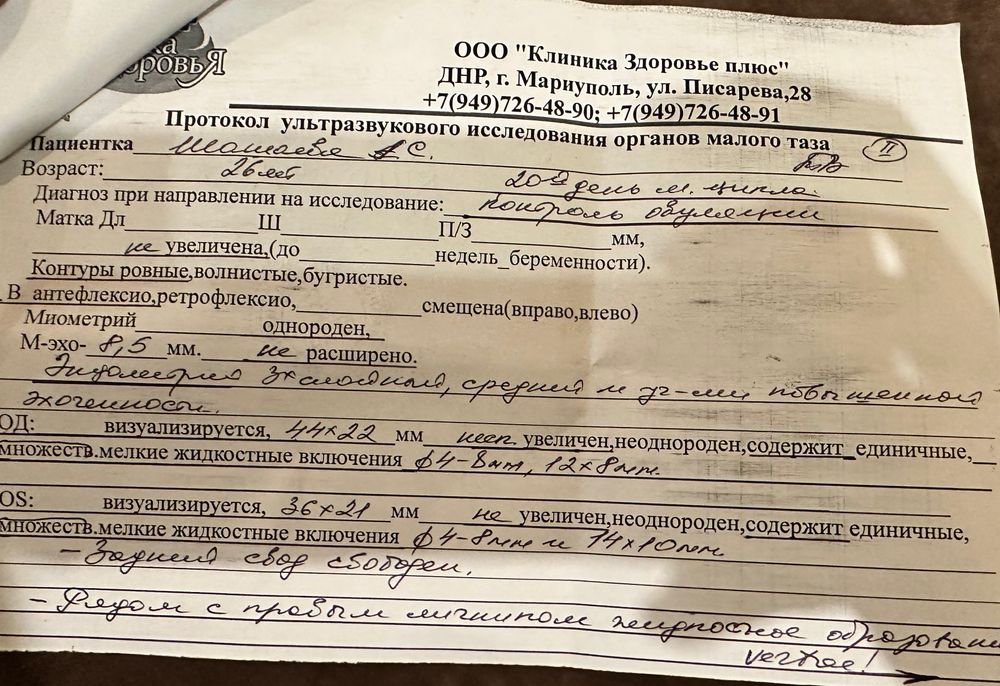 ка
здоровьЯ
ООО "Клиника Здоровье плюс"
ДНР, г. Мариуполь, ул. Писарева,28
+7(949)726-48-90; +7(949)726-48-91
Протокол ультразвукового исследования органов малого таза
II
Пациентка С.
Возраст: 26 лет 20-й день м. цикла.
Диагноз при направлении на исследование: контроль овуляции
Матка Дл Ш П/З мм,
не увеличена,(до недель беременности).
Контуры ровные,волнистые,бугристые.
В антефлексио,ретрофлексио, смещена(вправо,влево)
Миометрий однороден,
М-эхо- 8,5 мм. не расширено.
Эндометрий 3хслойный, средний и уч-ми повышенной
эхогенности.
ОД: визуализируется, 44х22 мм несп. увеличен,неоднороден,содержит единичные,
множеств.мелкие жидкостные включения ϕ4-8мм, 12х8мм.
OS: визуализируется, 36х21 мм не увеличен,неоднороден,содержит единичные,
множеств.мелкие жидкостные включения ϕ4-8мм и 14х10мм
- Задний свод свободен.
- Рядом с правым яичником жидкостное образован
vertae!